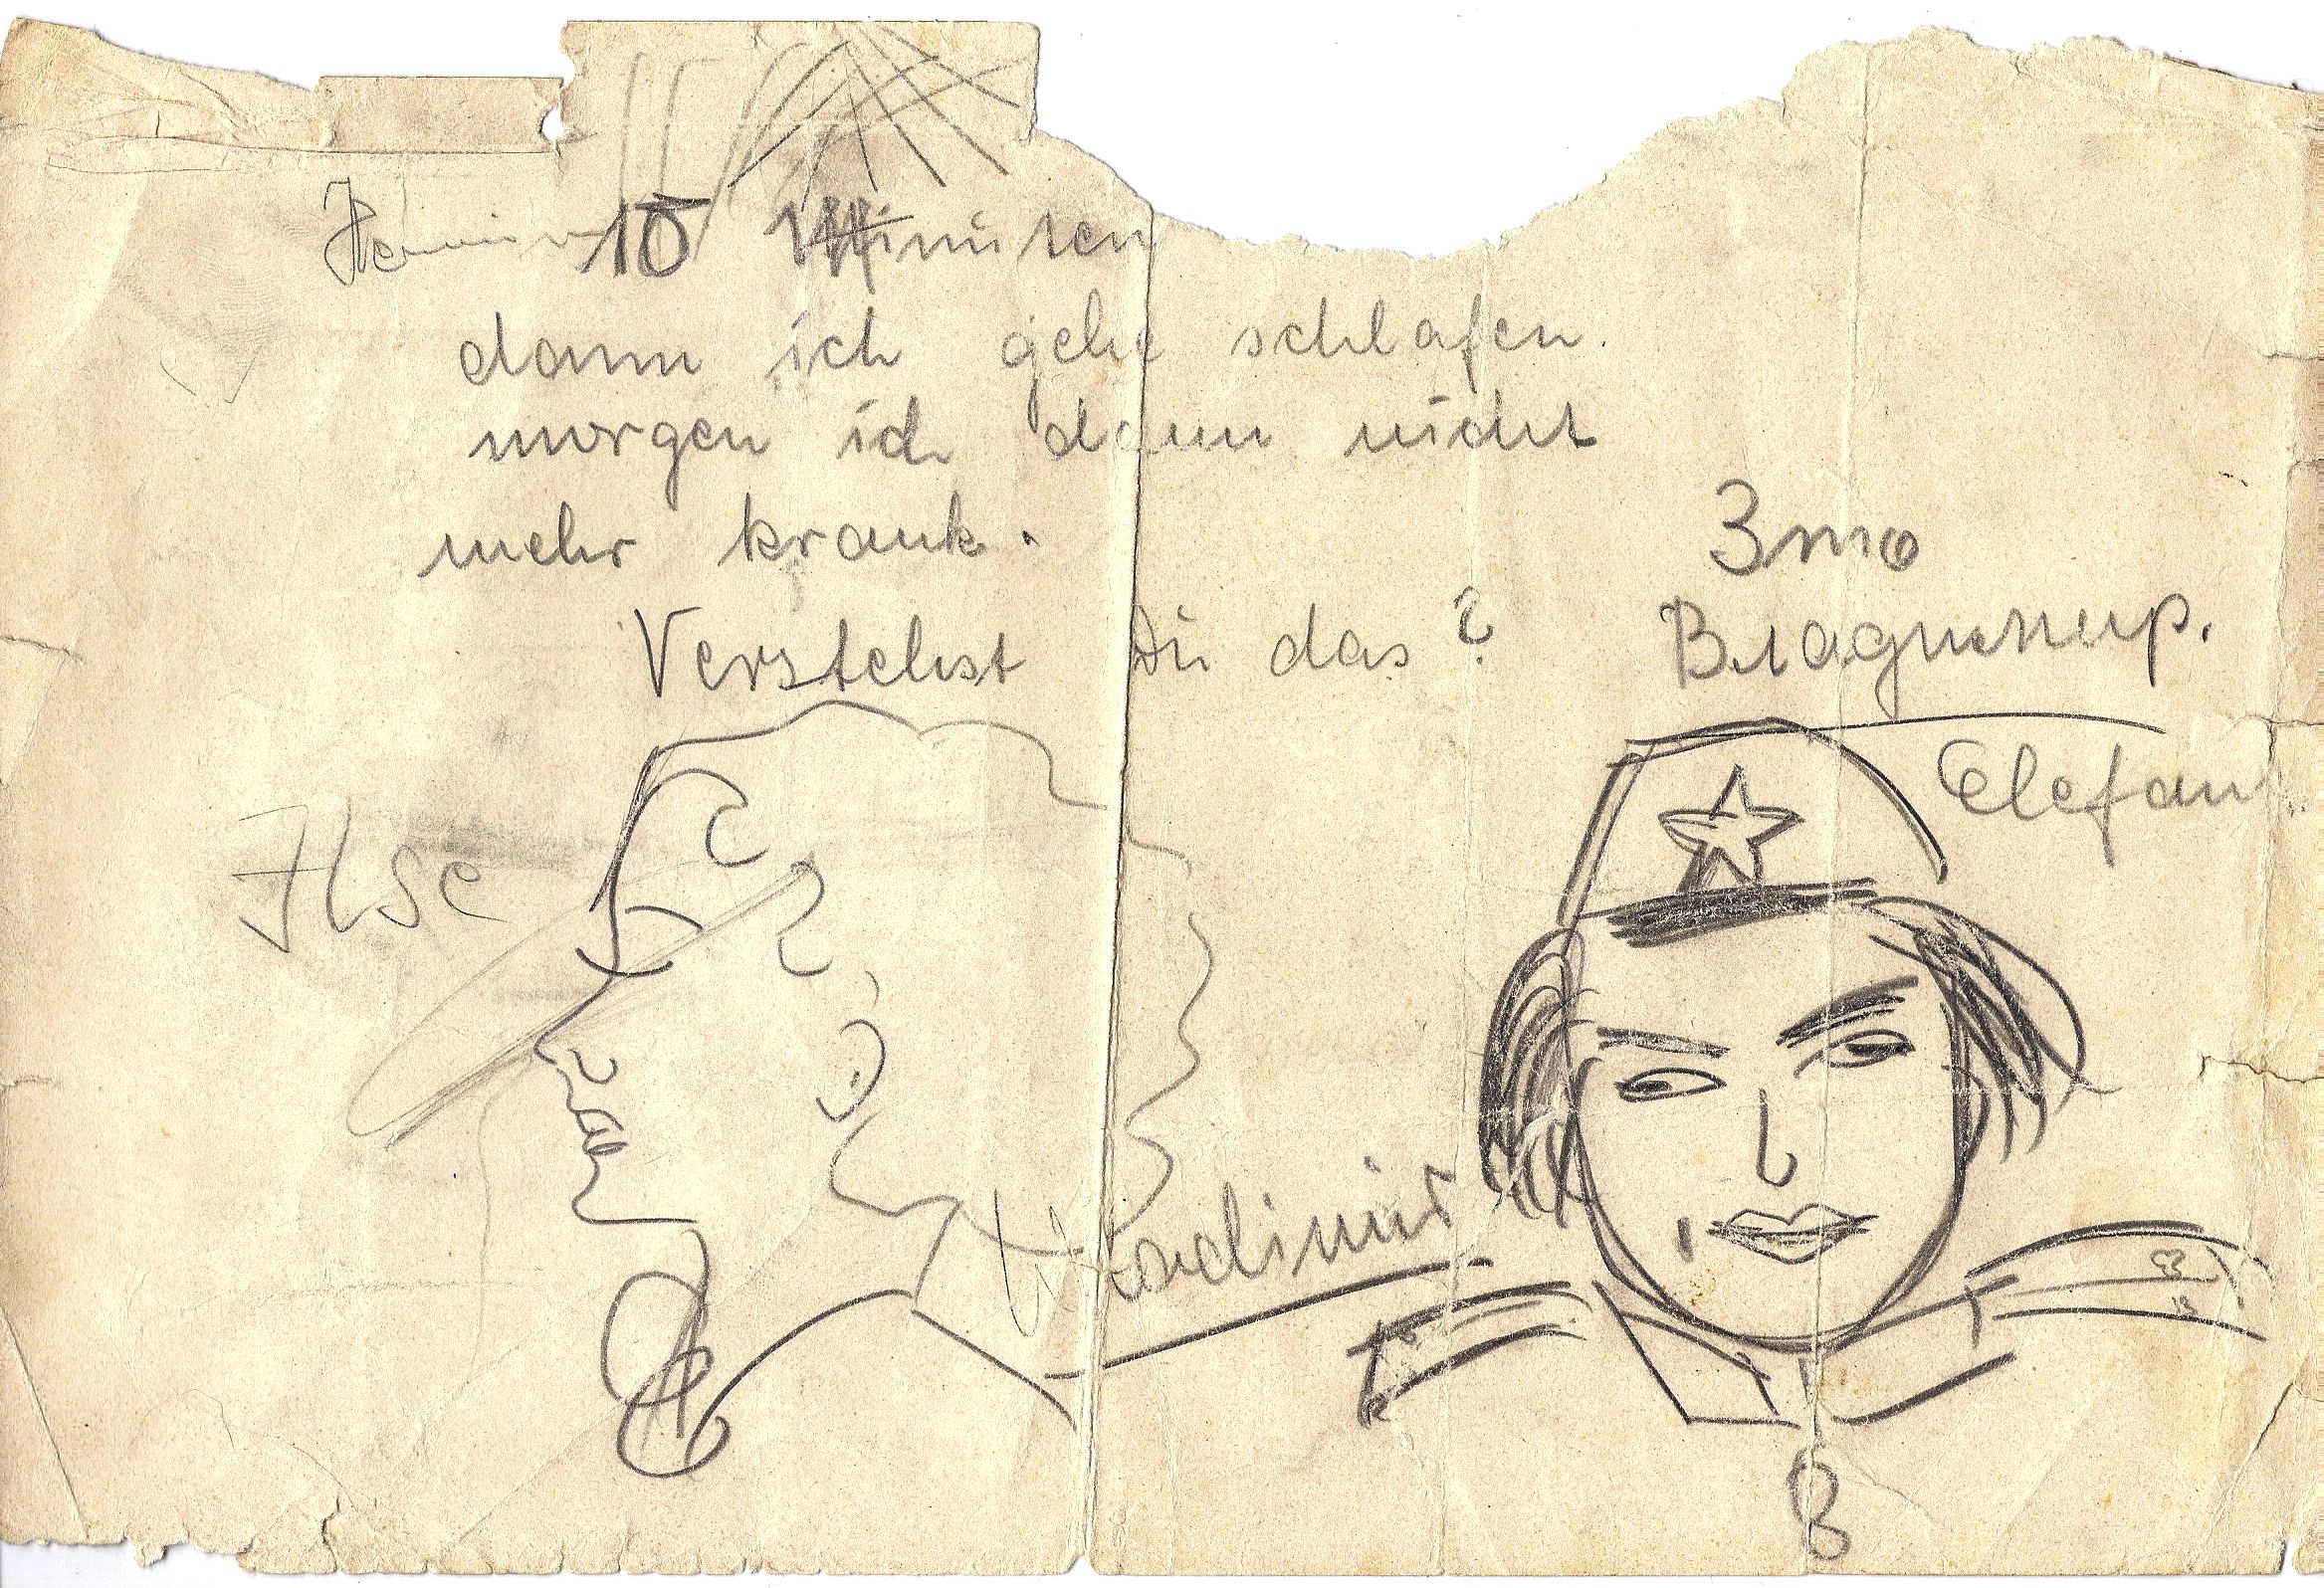 10 Minuten
dann ich gehe schlafen.
morgen ich dann nicht
mehr krank.
Verstehst Du das?
Это
Владимир.
Elefant
Ilse
Wladimir
8